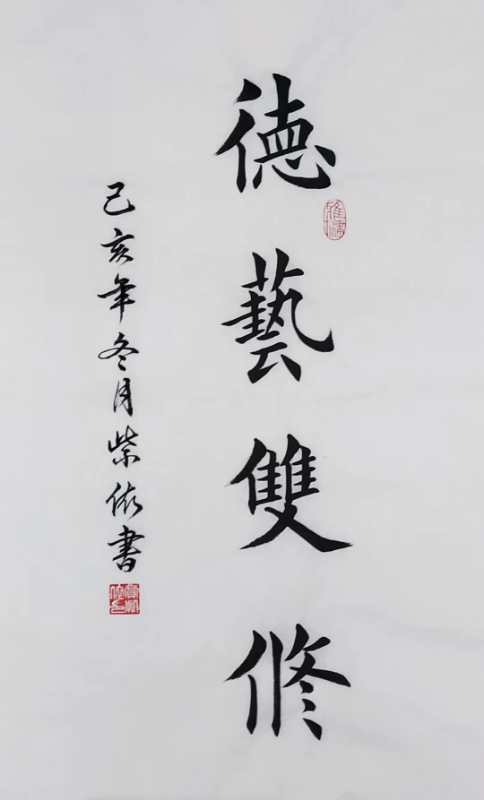 德藝雙修
己亥年冬月紫依書